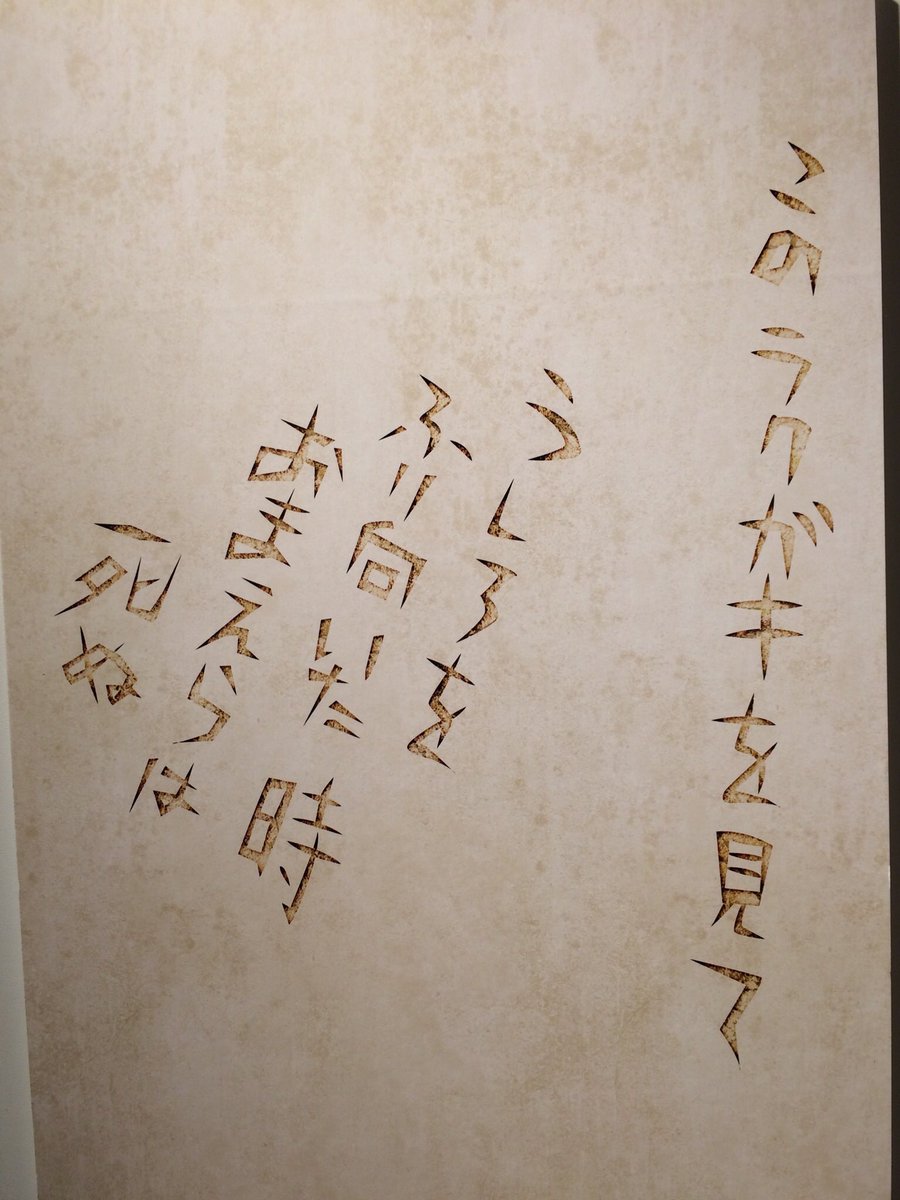 このラクガキを見て
うしろを
ふり向いた時
おまえらは
死ぬ